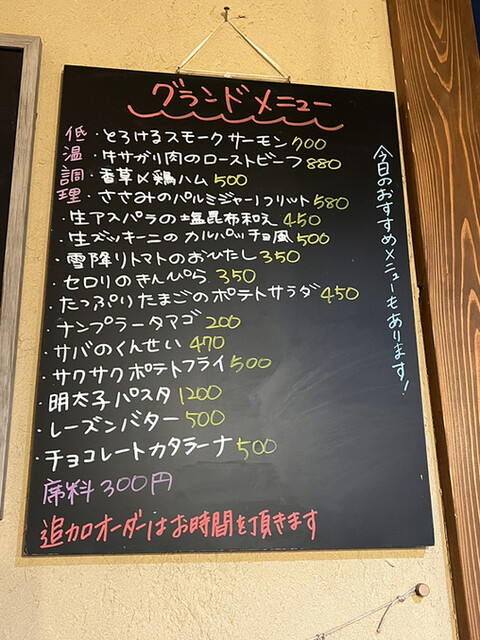 グランドメニュー
低温調理
・とろけるスモークサーモン 700
・牛サガリ肉のローストビーフ 880
・香草〆鶏ハム 500
・ささみのパルミジャーノフリット 580
・生アスパラの塩昆布和え 450
・生ズッキーニのカルパッチョ風 500
・雪降りトマトのおひたし 350
・セロリのきんぴら 350
・たっぷりたまごのポテトサラダ 450
・ナンプラータマゴ 200
・サバのくんせい 470
・サクサクポテトフライ 500
・明太子パスタ 1200
・レーズンバター 500
・チョコレートカタラーナ 500
席料300円
追加オーダーはお時間を頂きます
今日のおすすめメニューもあります!